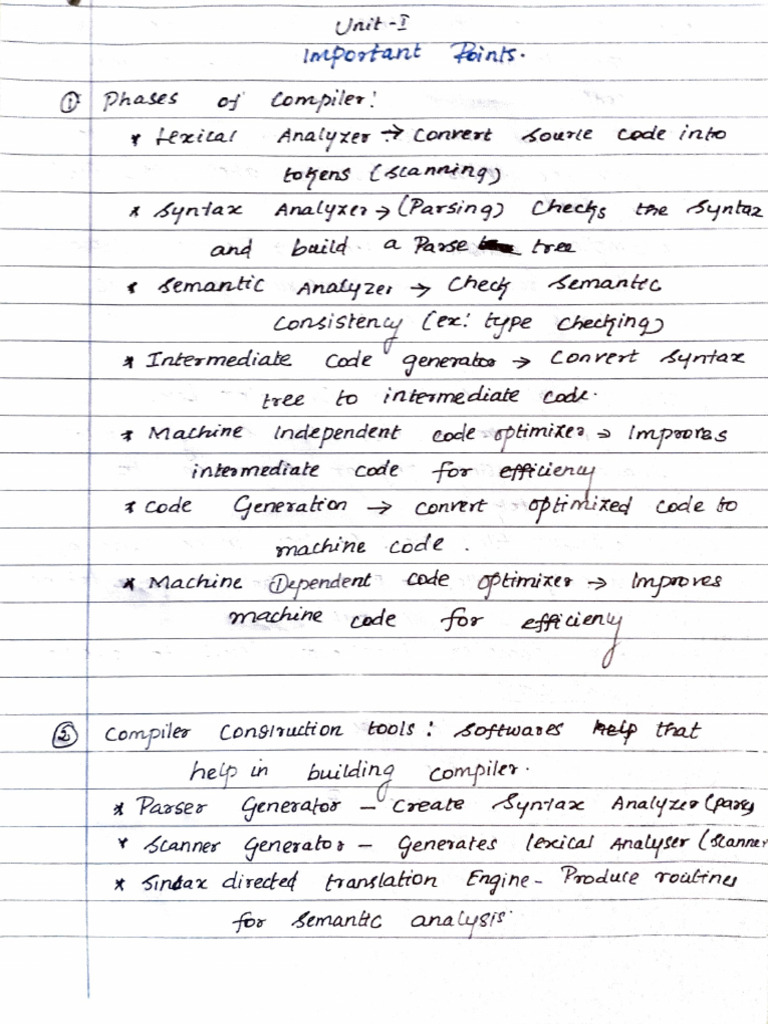 Unit-I
Important Points.
① Phases of Compiler:
* Lexical Analyzer → Convert source code into
tokens (scanning)
* Syntax Analyzer → (Parsing) Checks the Syntax
and build a Parse tree
* Semantic Analyzer → Check Semantic
Consistency (ex: type checking)
* Intermediate code generator → Convert syntax
tree to intermediate code.
* Machine Independent code optimizer → Improves
intermediate code for efficiency
* Code Generation → convert optimized code to
machine code.
* Machine Dependent code optimizer → Improves
machine code for efficieny
② Compiler Construction tools: Softwares help that
help in building compiler.
* Parser Generator – Create Syntax Analyzer (pars
* Scanner Generator – Generates lexical Analyser (Scanner
* Sintax directed translation Engine - Produce routines
for semantic analysis.